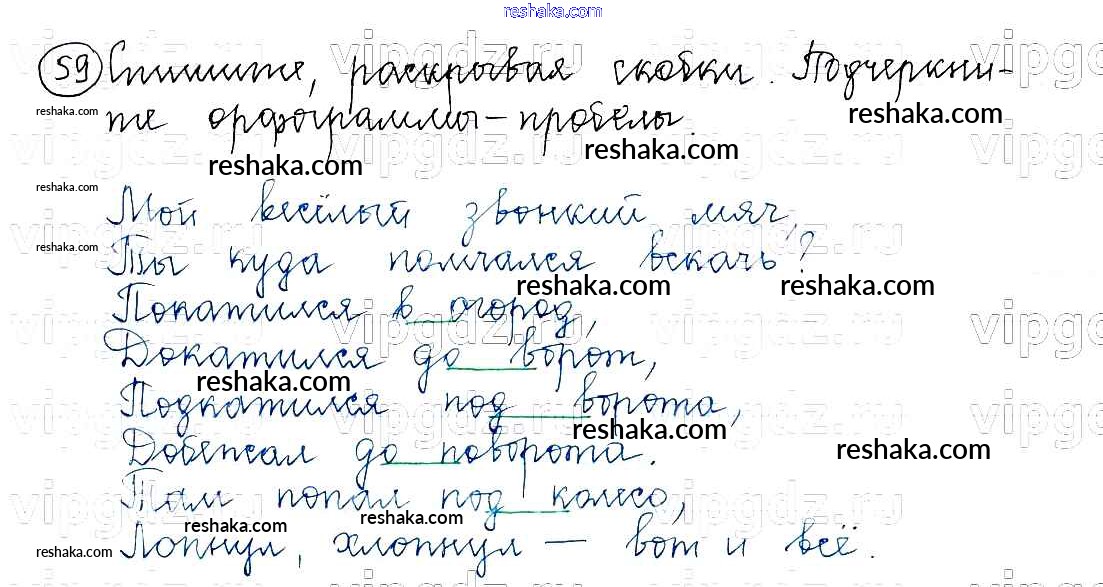 reshaka.com
59 Спишите, раскрывая скобки. Подчеркни-
те орфограммы-пробелы.
Мой весёлый звонкий мяч,
Ты куда помчался вскачь?
Покатился в огород,
Докатился до ворот,
Подкатился под ворота,
Добежал до поворота.
Там попал под колесо,
Лопнул, хлопнул – вот и всё.
vipgdz.ru
reshaka.com